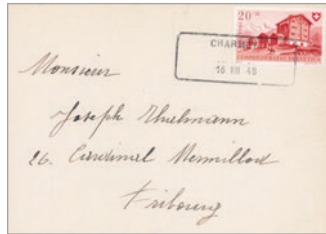 20+10
CHARMEY
16 VIII 48
Monsieur
Joseph Thalmann
26. Cardinal Mermillod
Fribourg